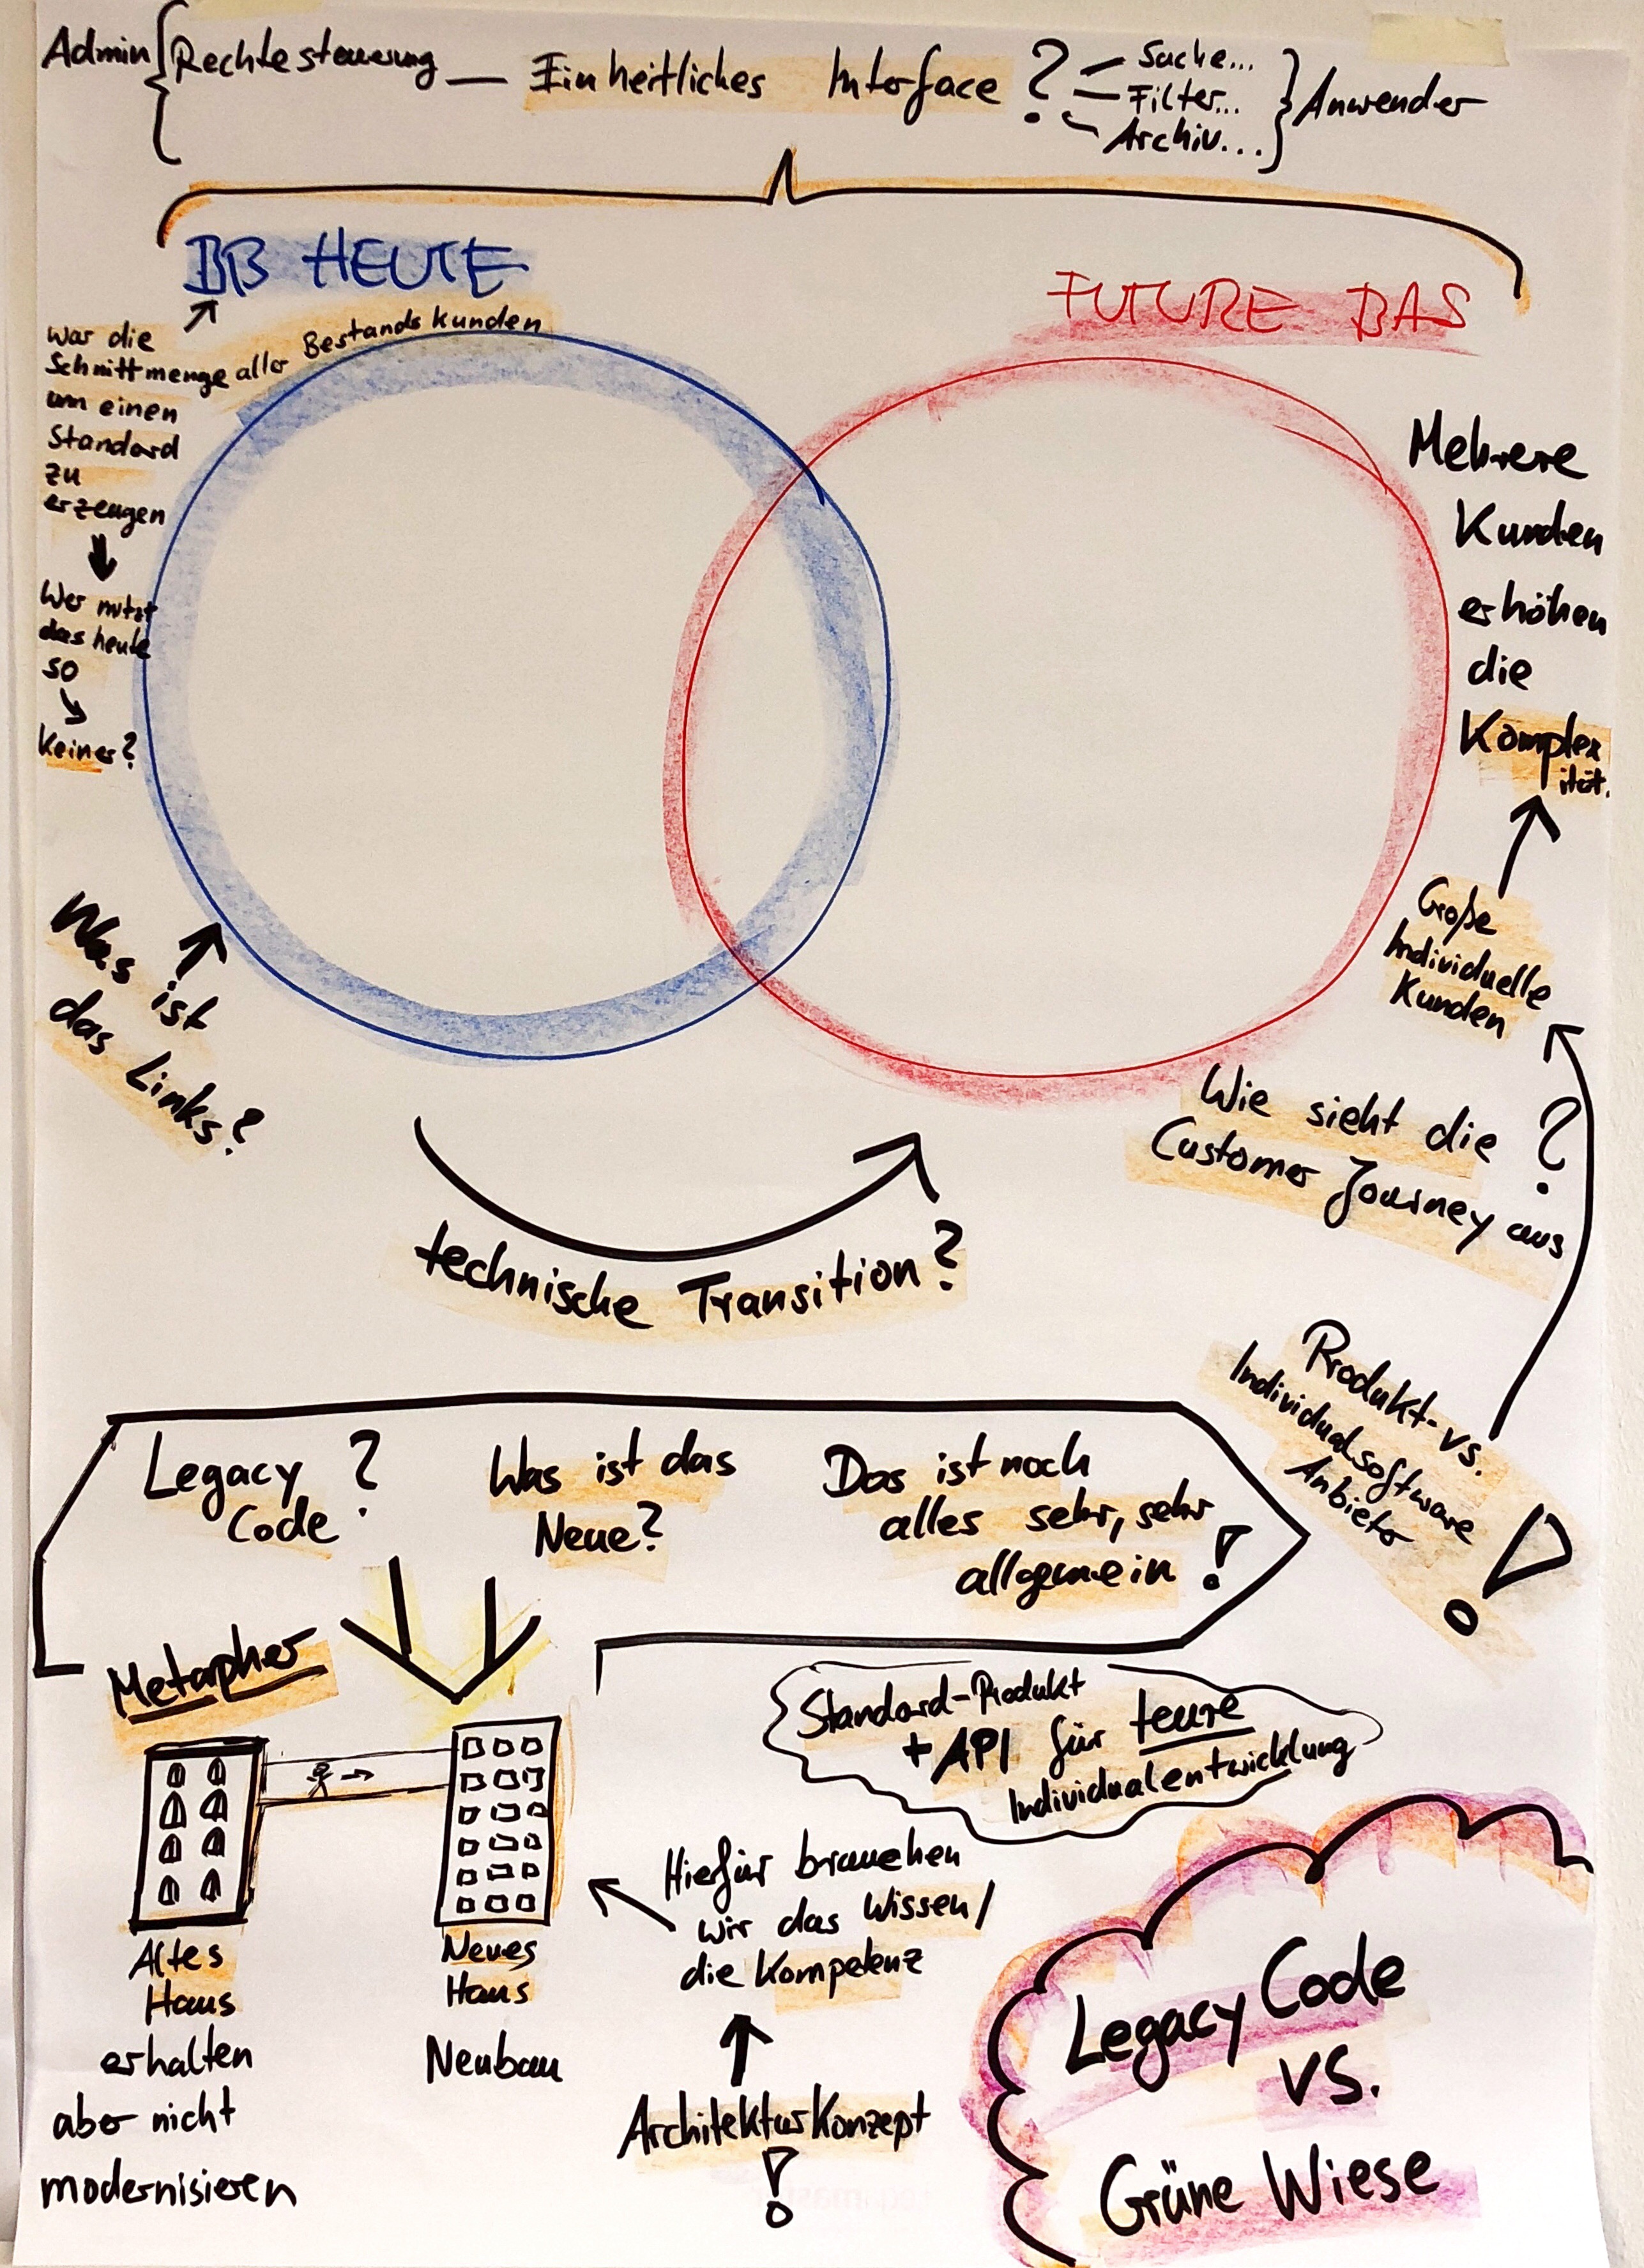 Admin { Rechtesteuerung — Einheitliches Interface ? } Anwender
Suche...
Filter...
Archiv...
BB HEUTE
FUTURE BAS
War die
Schnittmenge aller Bestandskunden
um einen
Standard
zu
erzeugen
Wer nutzt
das heute
so
Keiner?
Mehrere
Kunden
erhöhen
die
Komplex
ität.
Große
Individuelle
Kunden
Was ist
das Links?
Wie sieht die ?
Customer Journey aus
technische Transition?
Produkt- vs.
Individualsoftware
Anbieter
!
Legacy ?
Code
Was ist das
Neue?
Das ist noch
alles sehr, sehr
allgemein !
Metapher
Standard-Produkt
+ API für teure
Individualentwicklung
Altes
Haus
erhalten
aber nicht
modernisieren
Neues
Haus
Neubau
Hierfür brauchen
wir das Wissen/
die Kompetenz
ArchitekturKonzept
!
Legacy Code
vs.
Grüne Wiese